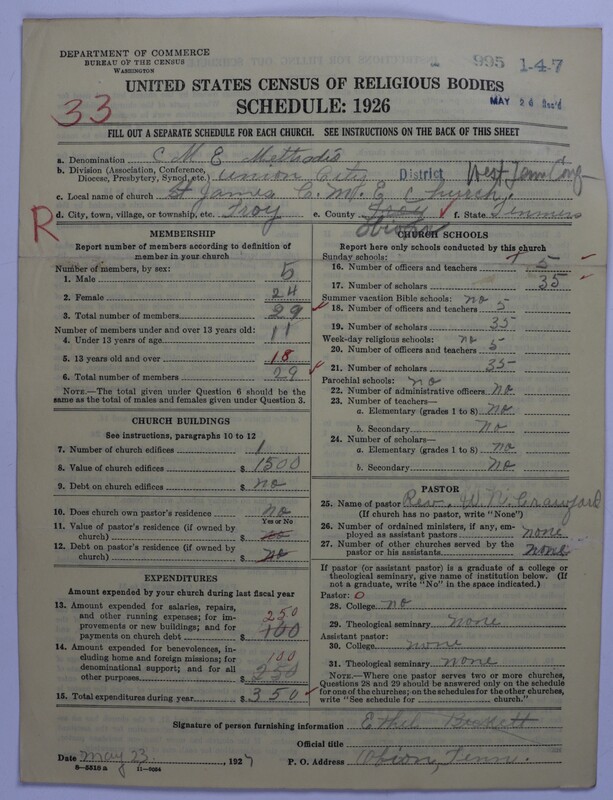 DEPARTMENT OF COMMERCE
BUREAU OF THE CENSUS
WASHINGTON
995 1-4-7
UNITED STATES CENSUS OF RELIGIOUS BODIES
MAY 26 Rec'd
33
SCHEDULE: 1926
FILL OUT A SEPARATE SCHEDULE FOR EACH CHURCH. SEE INSTRUCTIONS ON THE BACK OF THIS SHEET
a. Denomination C M E Methodis
b. Division (Association, Conference, Diocese, Presbytery, Synod, etc.) Union City District West Tenn Conf
c. Local name of church St James C. M. E Church
R
d. City, town, village, or township, etc. Troy e. County Obion f. State
MEMBERSHIP
Report number of members according to definition of member in your church
Number of members, by sex:
1. Male 5
2. Female 24
3. Total number of members 29
Number of members under and over 13 years old:
4. Under 13 years of age 11
5. 13 years old and over 18
6. Total number of members 29
NOTE.—The total given under Question 6 should be the same as the total of males and females given under Question 3.
CHURCH BUILDINGS
See instructions, paragraphs 10 to 12
7. Number of church edifices 1
8. Value of church edifices $ 1500
9. Debt on church edifices $ no
10. Does church own pastor's residence no
Yes or No
11. Value of pastor's residence (if owned by church) $ no
12. Debt on pastor's residence (if owned by church) $ no
EXPENDITURES
Amount expended by your church during last fiscal year
13. Amount expended for salaries, repairs, and other running expenses; for improvements or new buildings; and for payments on church debt $ 250 100
14. Amount expended for benevolences, including home and foreign missions; for denominational support; and for all other purposes $ 100 250
15. Total expenditures during year $ 350
CHURCH SCHOOLS
Report here only schools conducted by this church
Sunday schools:
16. Number of officers and teachers 5
17. Number of scholars 35
Summer vacation Bible schools: no
18. Number of officers and teachers 5
19. Number of scholars 35
Week-day religious schools: no
20. Number of officers and teachers 5
21. Number of scholars 35
Parochial schools: no
22. Number of administrative officers no
23. Number of teachers—
a. Elementary (grades 1 to 8) no
b. Secondary no
24. Number of scholars—
a. Elementary (grades 1 to 8) no
b. Secondary no
PASTOR
25. Name of pastor Rev. W. N. Crawford
(If church has no pastor, write "None")
26. Number of ordained ministers, if any, employed as assistant pastors none
27. Number of other churches served by the pastor or his assistants none
If pastor (or assistant pastor) is a graduate of a college or theological seminary, give name of institution below. (If not a graduate, write "No" in the space indicated.)
Pastor: O
28. College no
29. Theological seminary none
Assistant pastor:
30. College none
31. Theological seminary none
NOTE.—Where one pastor serves two or more churches, Questions 28 and 29 should be answered only on the schedule for one of the churches; on the schedules for the other churches, write "See schedule for church."
Signature of person furnishing information Ethel
Official title
Date May 23, 1927 P. O. Address Obion, Tenn.
8—5515 a 11—9064